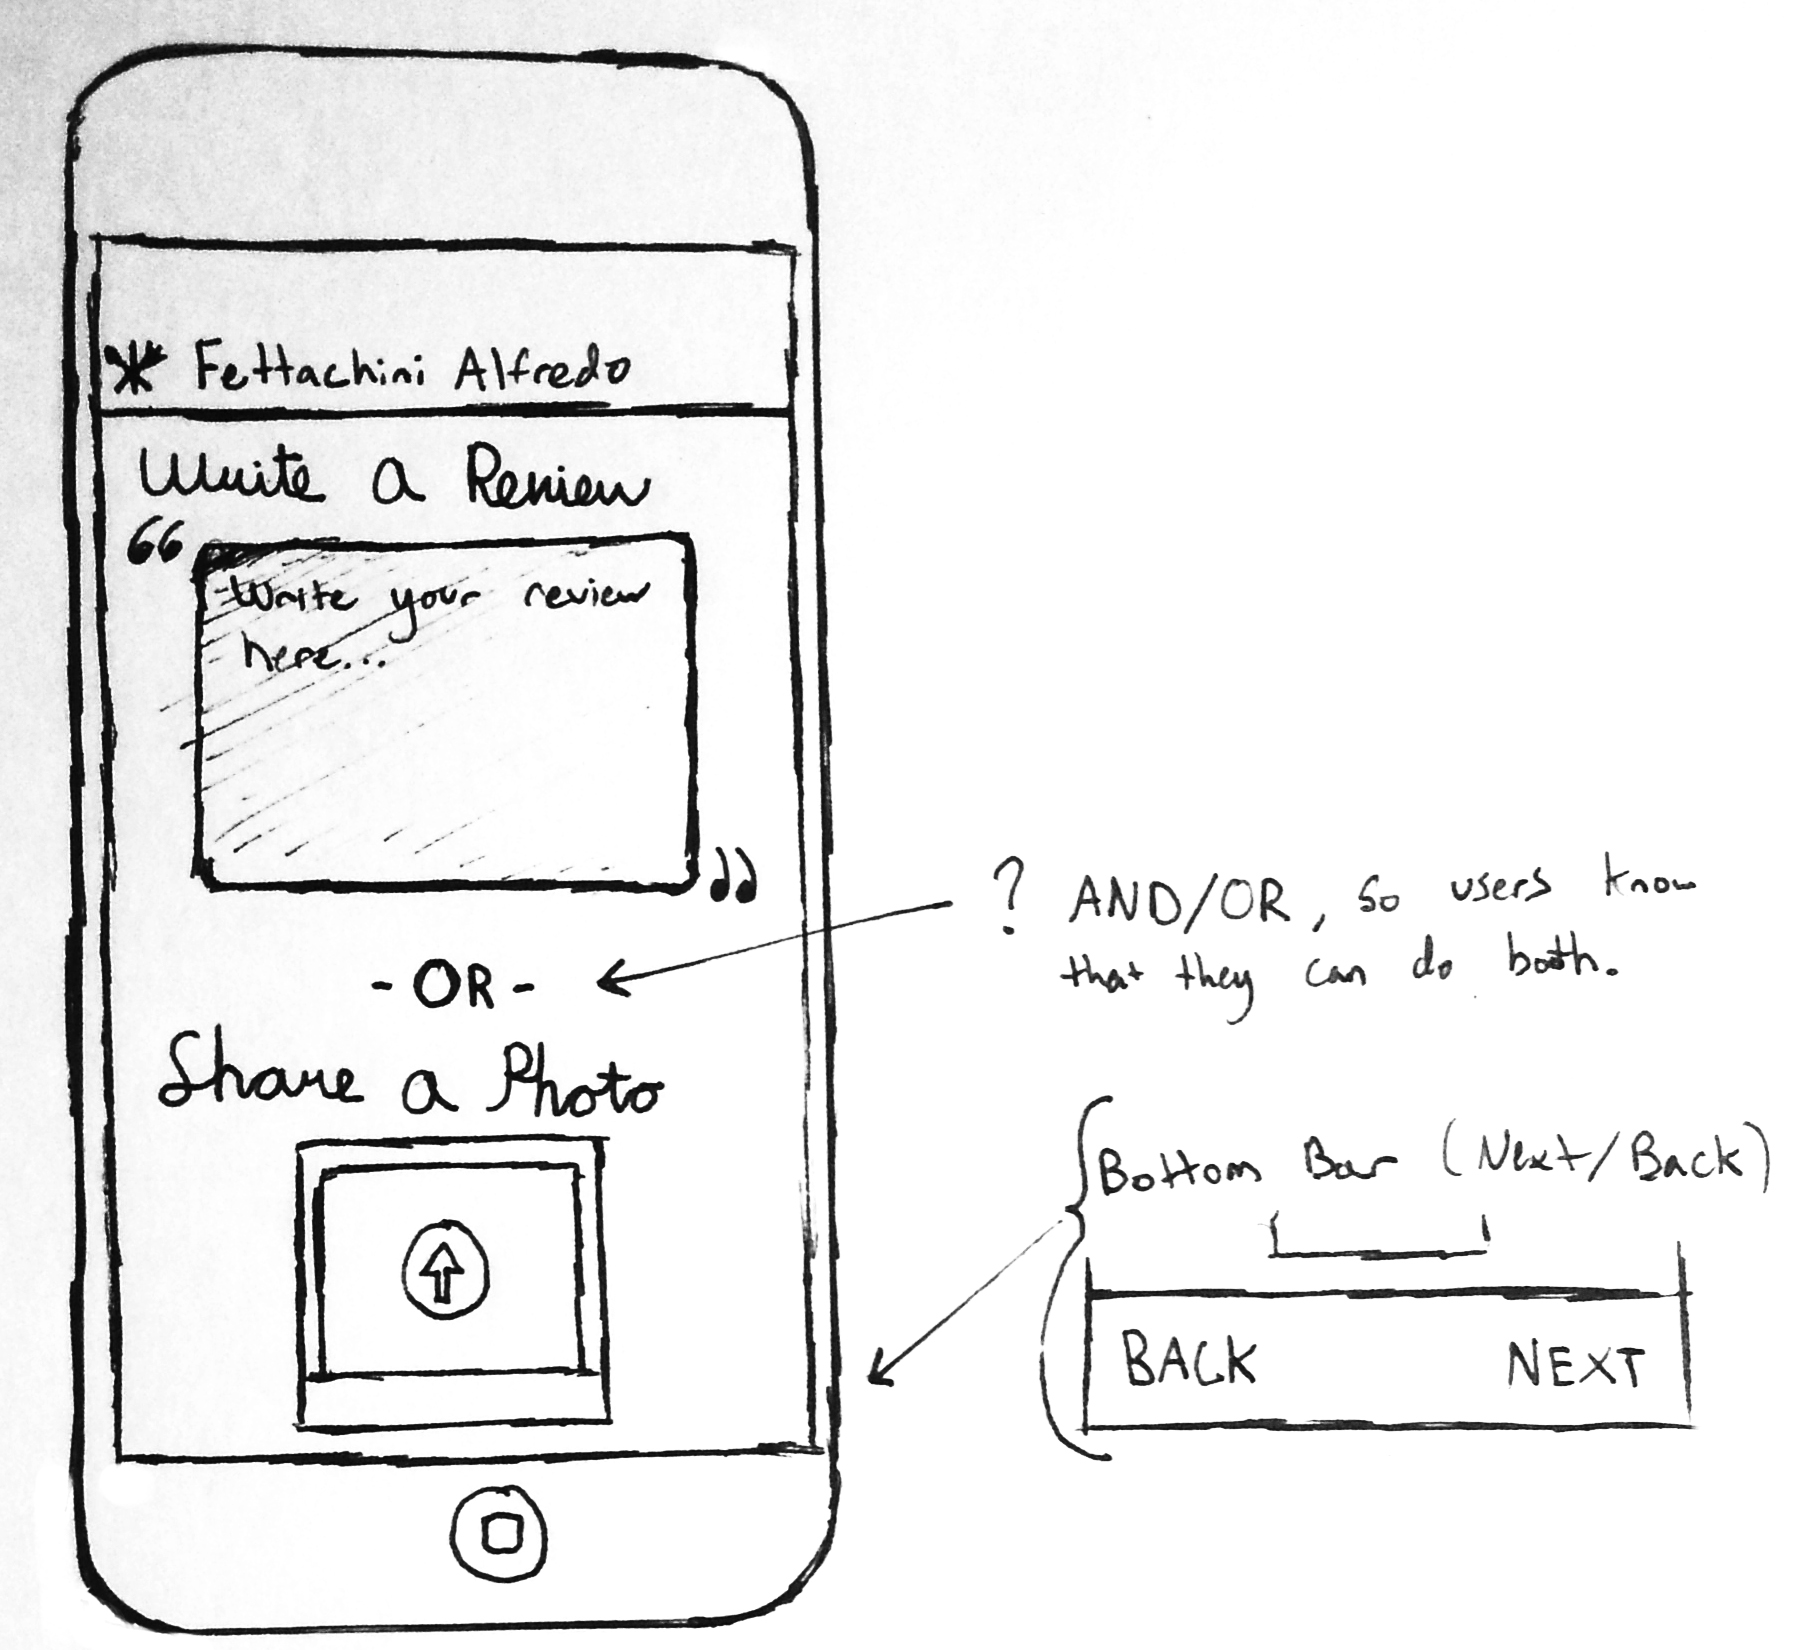 Fettachini Alfredo
Write a Review
“
Write your review
here...
”
- OR -
Share a Photo
? AND/OR, so users know
that they can do both.
Bottom Bar (Next/Back)
BACK NEXT